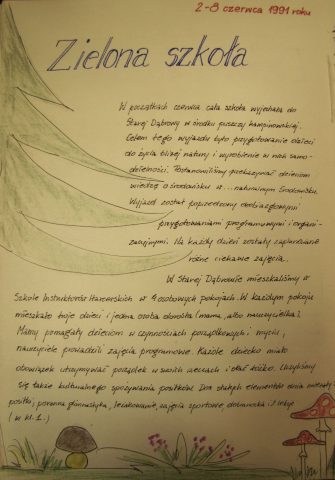 2-8 czerwca 1991 roku
Zielona szkoła
W początkach czerwca cała szkoła wyjechała do
Starej Dąbrowy w środku puszczy kampinowskiej.
Celem tego wyjazdu było przygotowanie dzieci
do życia bliżej natury i wyrobienie w nich samo-
dzielności. Postanowiliśmy przekazywać dzieciom
wiedzę o środowisku w... naturalnym środowisku.
Wyjazd został poprzedzony drobiazgowymi
przygotowaniami programowymi i organi-
zacyjnymi. Na każdy dzień zostały zaplanowane
różne ciekawe zajęcia.
W Starej Dąbrowie mieszkaliśmy w
Szkole Instruktorów Harcerskich w 4 osobowych pokojach. W każdym pokoju
mieszkało troje dzieci i jedna osoba dorosła (mama, albo nauczycielka).
Mamy pomagały dzieciom w czynnościach porządkowych i myciu,
nauczyciele prowadzili zajęcia programowe. Każde dziecko miało
obowiązek utrzymywać porządek w swoich rzeczach i słać łóżko. Uczyliśmy
się także kulturalnego spożywania posiłków. Do stałych elementów dnia należały
posiłki, poranna gimnastyka, leżakowanie, zajęcia sportowe, dobranocka i lekcje
(w kl. 1.)